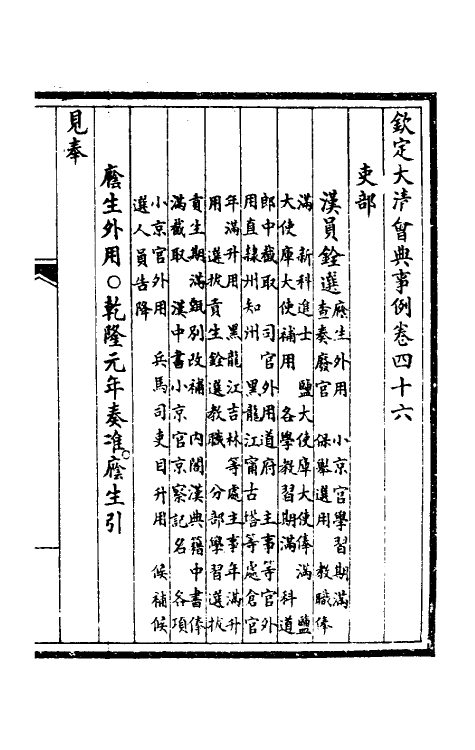 欽定大清會典事例卷四十六
吏部
漢員銓選
廕生外用　小京官學習期滿
查奏廢官　保舉選用　教職俸
滿　新科進士　鹽大使庫大使俸滿　鹽
大使庫大使補用　各學教習期滿　科道
郎中截取　司官外用道府　主事等官外
用直隸州知州　黑龍江甯古塔等處倉官
年滿升用　黑龍江吉林等處主事年滿升
用　選拔貢生銓選教職　分部學習選拔
貢生期滿甄別改補　內閣漢典籍中書俸
滿截取　漢中書小京官京察記名　各項
小京官外用　兵馬司吏目升用　候補候
選人員告降
廕生外用○乾隆元年奏准。廕生引
見奉